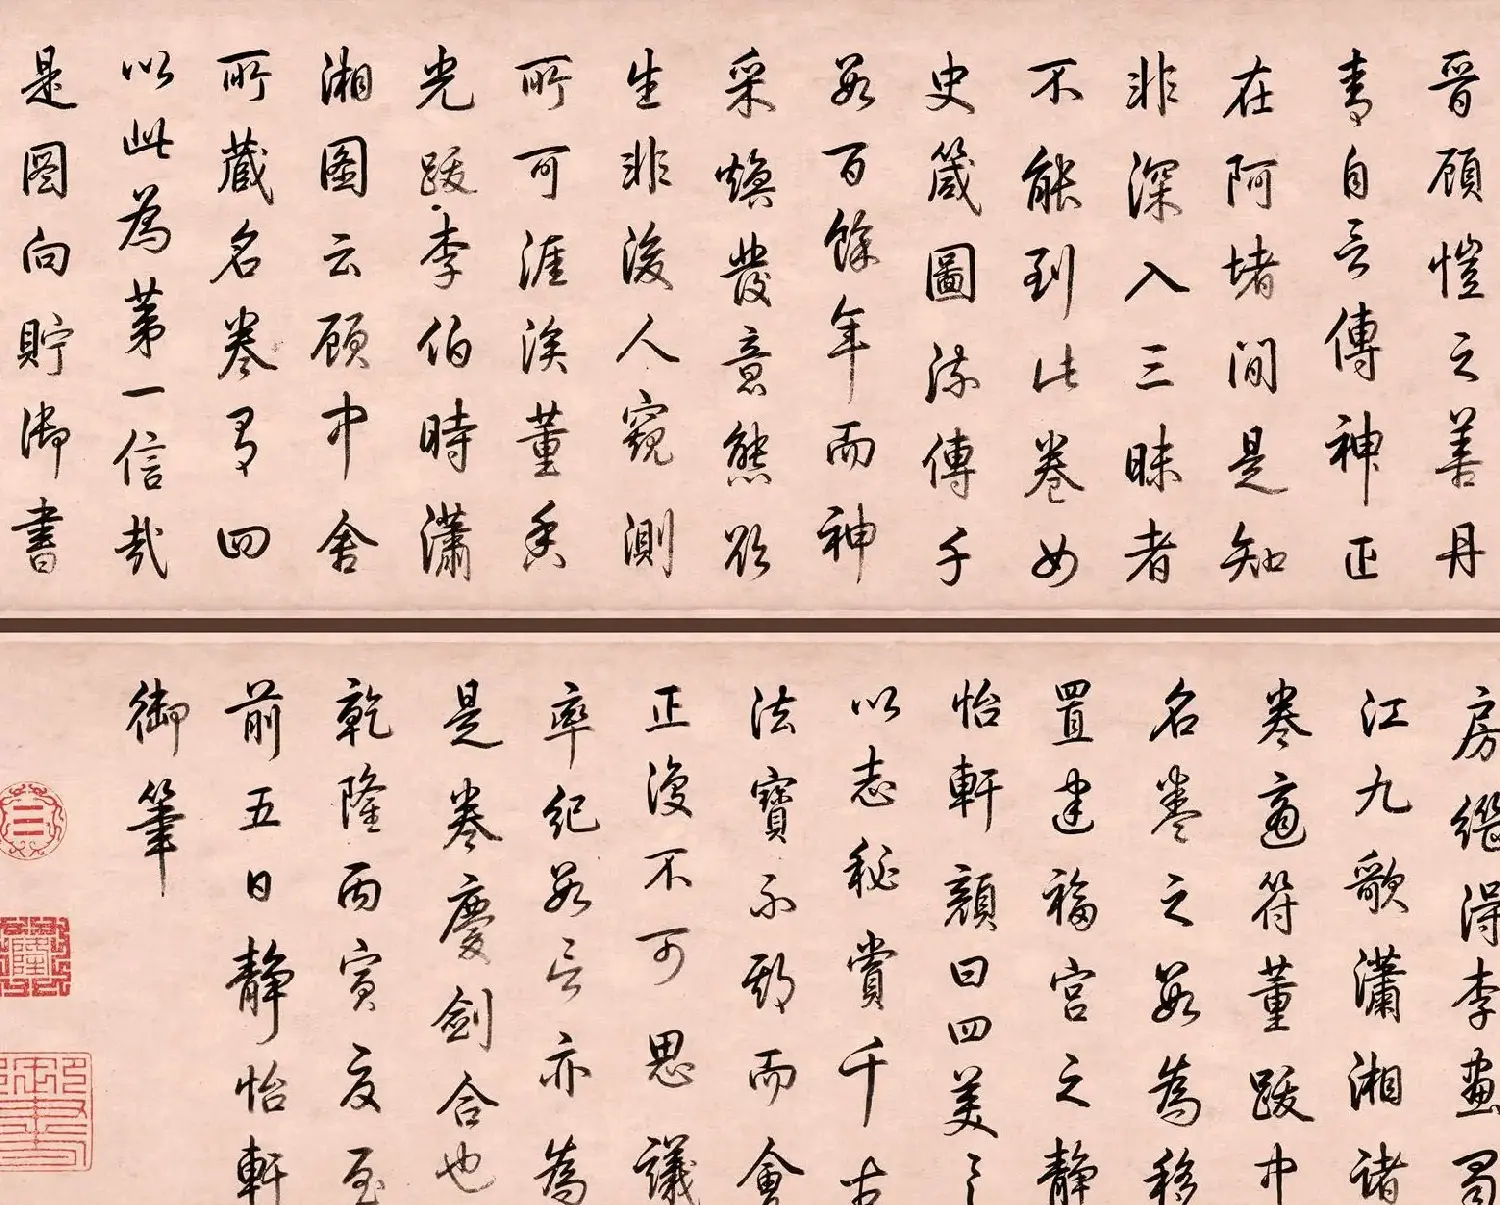 晉顧愷之善丹
青自言傳神正
在阿堵間是知
非深入三昧者
不能到此卷女
史箴圖流傳千
數百餘年而神
采煥發意態欲
生非後人窺測
所可涯涘董香
光跋李伯時瀟
湘圖云顧中舍
所藏名卷有四
以此為第一信哉
是圖向貯御書
房繼得李畫蜀
江九歌瀟湘諸
卷適符董跋中
名卷之數為移
置建福宮之靜
怡軒顏曰四美
以志秘賞千古
法寶不期而會
正復不可思議
率紀數言亦為
是卷慶劍合也
乾隆丙寅夏至
前五日靜怡軒
御筆
☰
乾隆